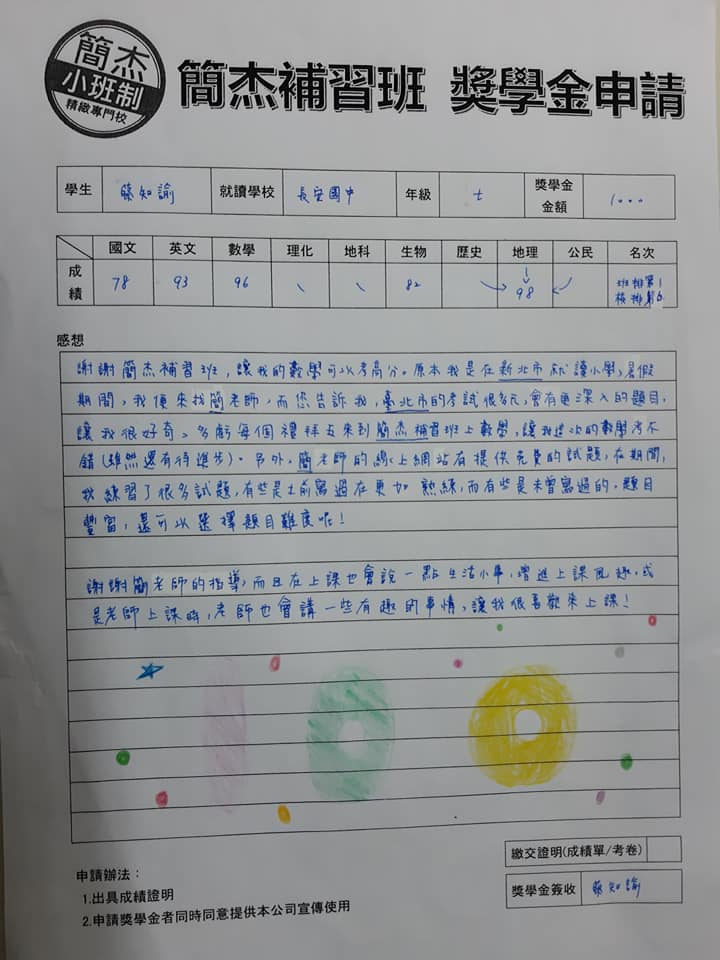 簡杰
小班制
精緻專門校
簡杰補習班 獎學金申請
學生 蔡知諭 就讀學校 長安國中 年級 七 獎學金金額 1000
國文 英文 數學 理化 地科 生物 歷史 地理 公民 名次
成績 78 93 96 \ \ 82 98 班排第1
校排第6
感想
謝謝簡杰補習班,讓我的數學可以考高分。原本我是在新北市就讀小學,暑假
期間,我便來找簡老師,而您告訴我,臺北市的考試很多元,會有更深入的題目,
讓我很好奇。多虧每個禮拜五來到簡杰補習班上數學,讓我這次的數學考不
錯(雖然還有待進步)。另外,簡老師的線上網站有提供免費的試題,在期間,
我練習了很多試題,有些是之前寫過在更加熟練,而有些是未曾寫過的,題目
豐富,還可以選擇題目難度呢!
謝謝簡老師的指導,而且在上課也會說一點生活小事,增進上課風趣,或
是老師上課時,老師也會講一些有趣的事情,讓我很喜歡來上課!
100
繳交證明(成績單/考卷)
申請辦法:
1.出具成績證明
獎學金簽收 蔡知諭
2.申請獎學金者同時同意提供本公司宣傳使用